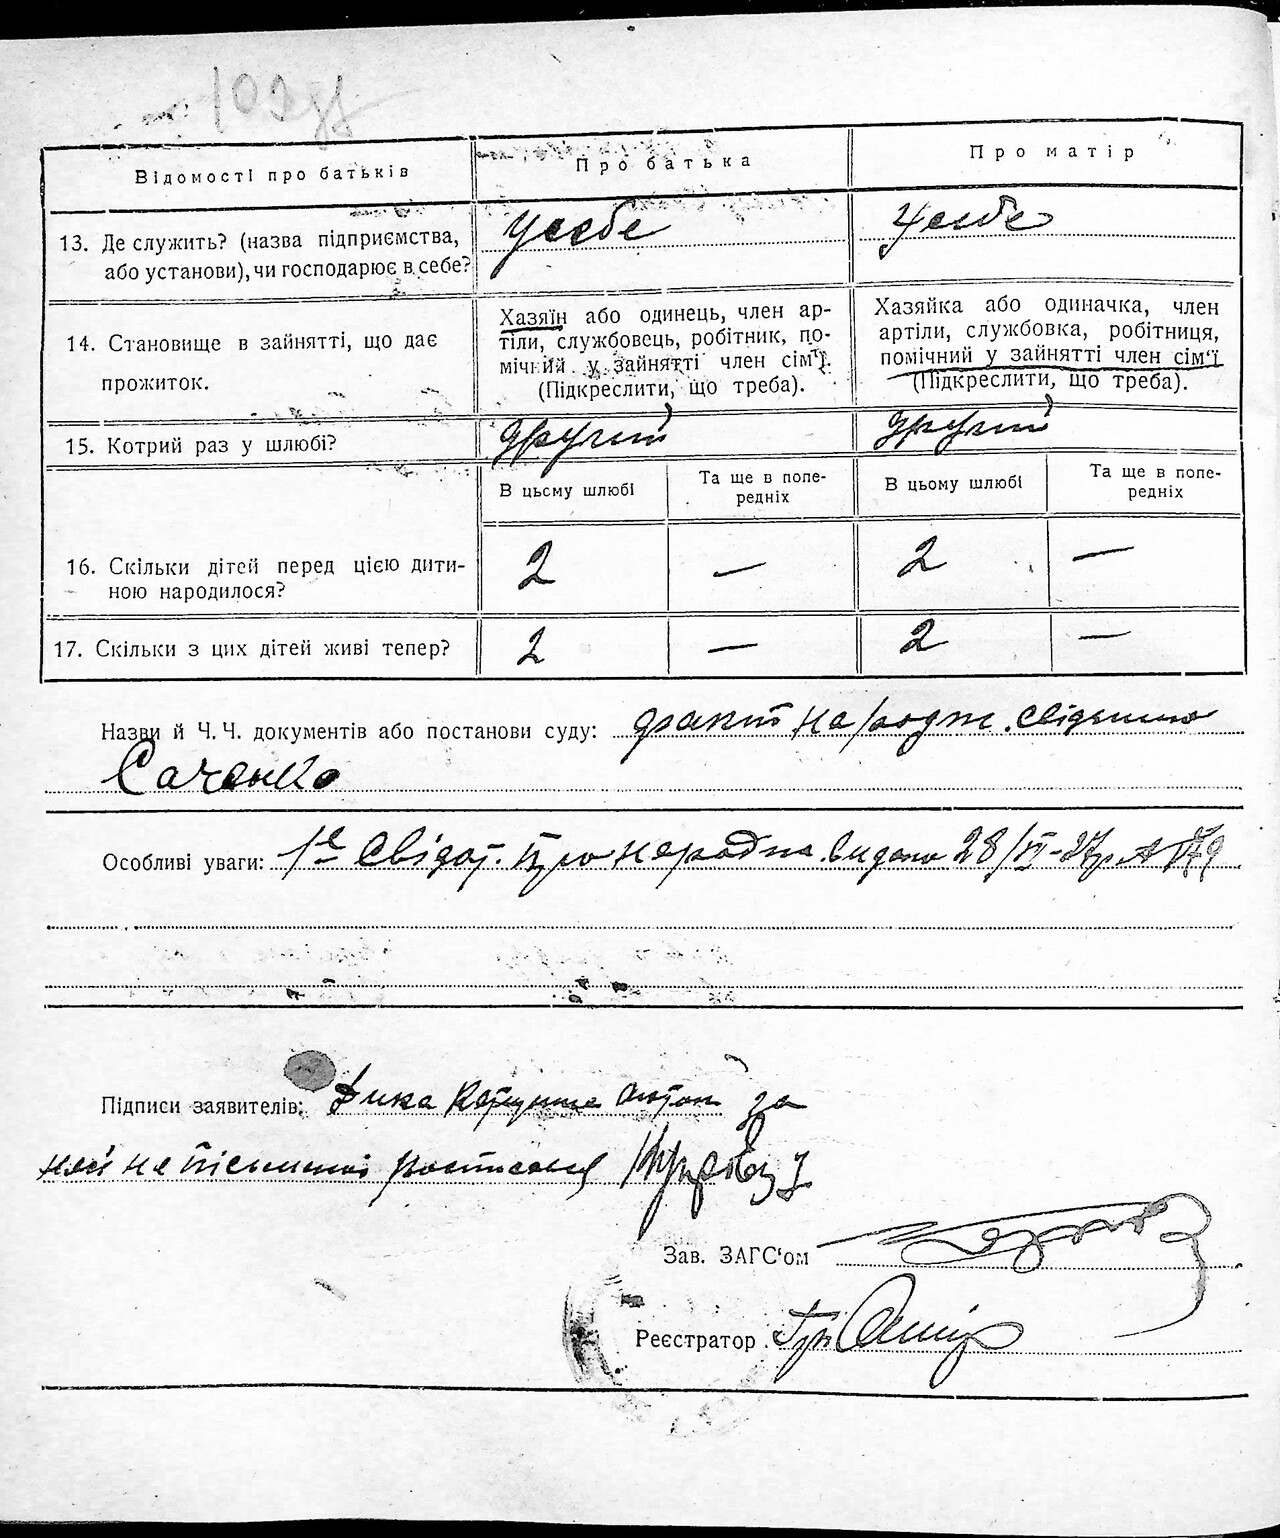 Відомості про батьків
Про батька
Про матір
13. Де служить? (назва підприємства,
або установи), чи господарює в себе?
у себе
у себе
14. Становище в зайнятті, що дає
прожиток.
Хазяїн або одинець, член ар-
тіли, службовець, робітник, по-
мічний у зайнятті член сім'ї.
(Підкреслити, що треба).
Хазяйка або одиначка, член
артіли, службовка, робітниця,
помічний у зайнятті член сім'ї
(Підкреслити, що треба).
15. Котрий раз у шлюбі?
другий
другий
В цьому шлюбі
Та ще в попе-
редніх
В цьому шлюбі
Та ще в попе-
редніх
16. Скільки дітей перед цією дити-
ною народилося?
2 — 2 —
17. Скільки з цих дітей живі тепер?
2 — 2 —
Назви й Ч. Ч. документів або постанови суду: факт народж.
Саченко
Особливі уваги: 1е Свідоц. про народж. видано 28/
Підписи заявителів: за
неписьменної
Зав. ЗАГС'ом
Реєстратор